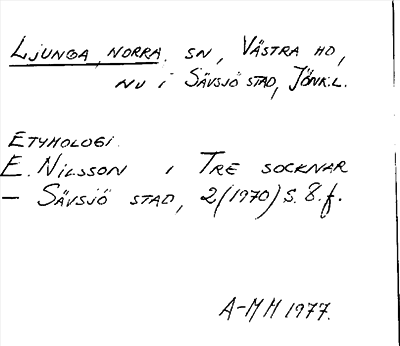 LJUNGA, NORRA. SN, VÄSTRA HD,
NU I SÄVSJÖ STAD, JÖNK.L.
ETYMOLOGI.
E. NILSSON I TRE SOCKNAR
– SÄVSJÖ STAD, 2(1970) S. 8.f.
A-MH 1977.